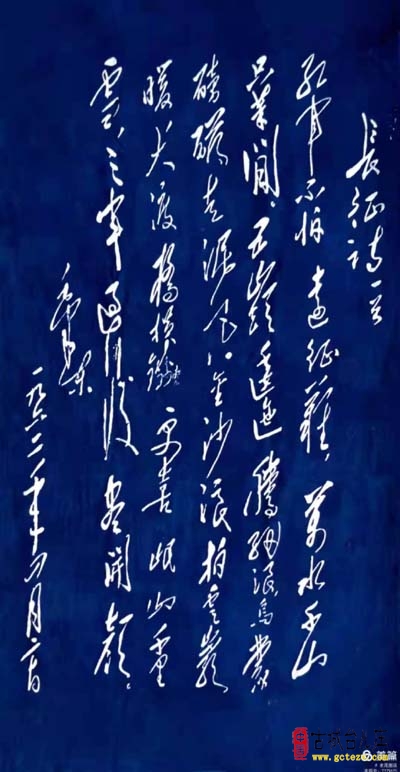 長征詩一首
红軍不怕遠征難，萬水千山
只等閒。五嶺逶迤騰細浪，烏蒙
磅礴走泥丸。金沙浪拍雲崖
暖，大渡橋橫鐵索寒。更喜岷山千里
雪，三軍過後盡開顏。
毛澤東
一九六二年四月廿日
美篇
www.gctezw.com